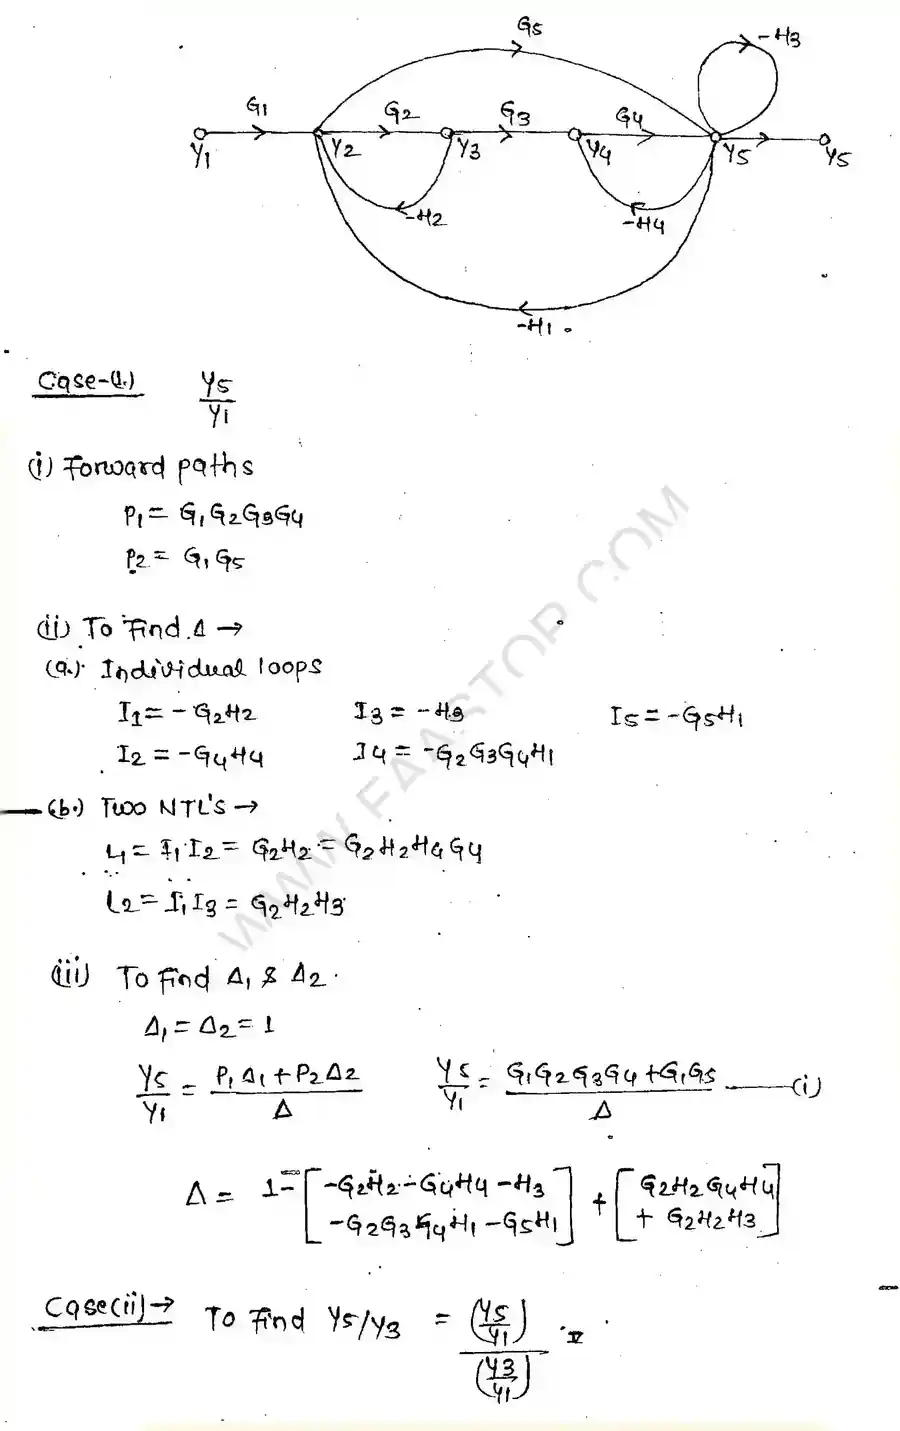 G5
-H3
G1
G2
G3
G4
Y1
Y2
Y3
Y4
Y5
Y5
-H2
-H4
-H1
Case-(1.) Y5/Y1
(i) Forward paths
P1 = G1G2G3G4
P2 = G1G5
(ii) To Find Δ →
(a.) Individual loops
I1 = -G2H2 I3 = -H3 I5 = -G5H1
I2 = -G4H4 I4 = -G2G3G4H1
(b.) Two NTL'S →
L1 = I1 I2 = G2H2 = G2H2H4G4
L2 = I1 I3 = G2H2H3
(iii) To Find Δ1 & Δ2.
Δ1 = Δ2 = 1
Y5/Y1 = P1Δ1+P2Δ2/Δ Y5/Y1 = G1G2G3G4+G1G5/Δ —(i)
Δ = 1-[-G2H2-G4H4-H3
-G2G3G4H1-G5H1] + [G2H2G4H4
+ G2H2H3]
Case(ii)→ To Find Y5/Y3 = (Y5/Y1)/(Y3/Y1)
WWW.FAASTOP.COM